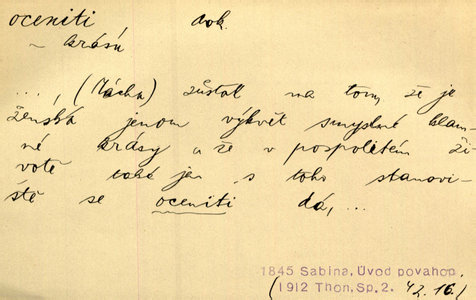 oceniti dok.
~ krásu
..., (Mácha) zůstal na tom, že je
ženská jenom výkvět smyslné klam-
né krásy a že v pospolitém ži-
votě také jen s toho stanovi-
ště se oceniti dá, ...
1845 Sabina, Úvod povahop.
(1912 Thon, Sp. 2. 42.16)